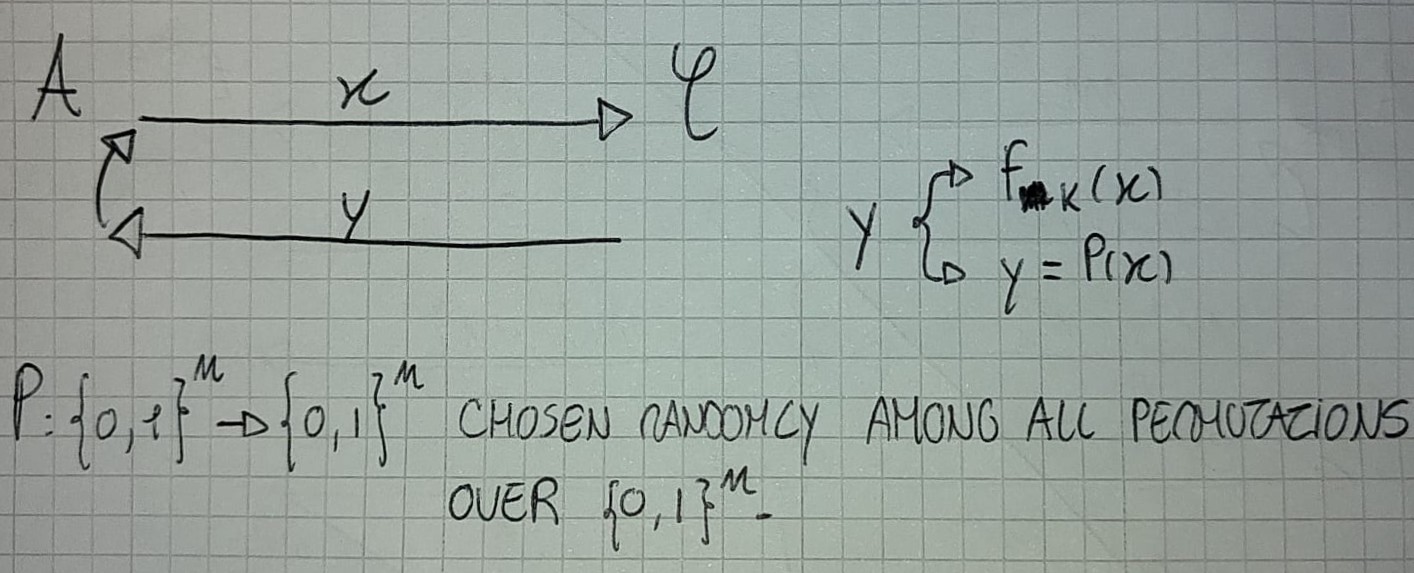 A x C
y
y f_K(x)
y = P(x)
P: {0,1}^n → {0,1}^n CHOSEN RANDOMLY AMONG ALL PERMUTATIONS
OVER {0,1}^n.